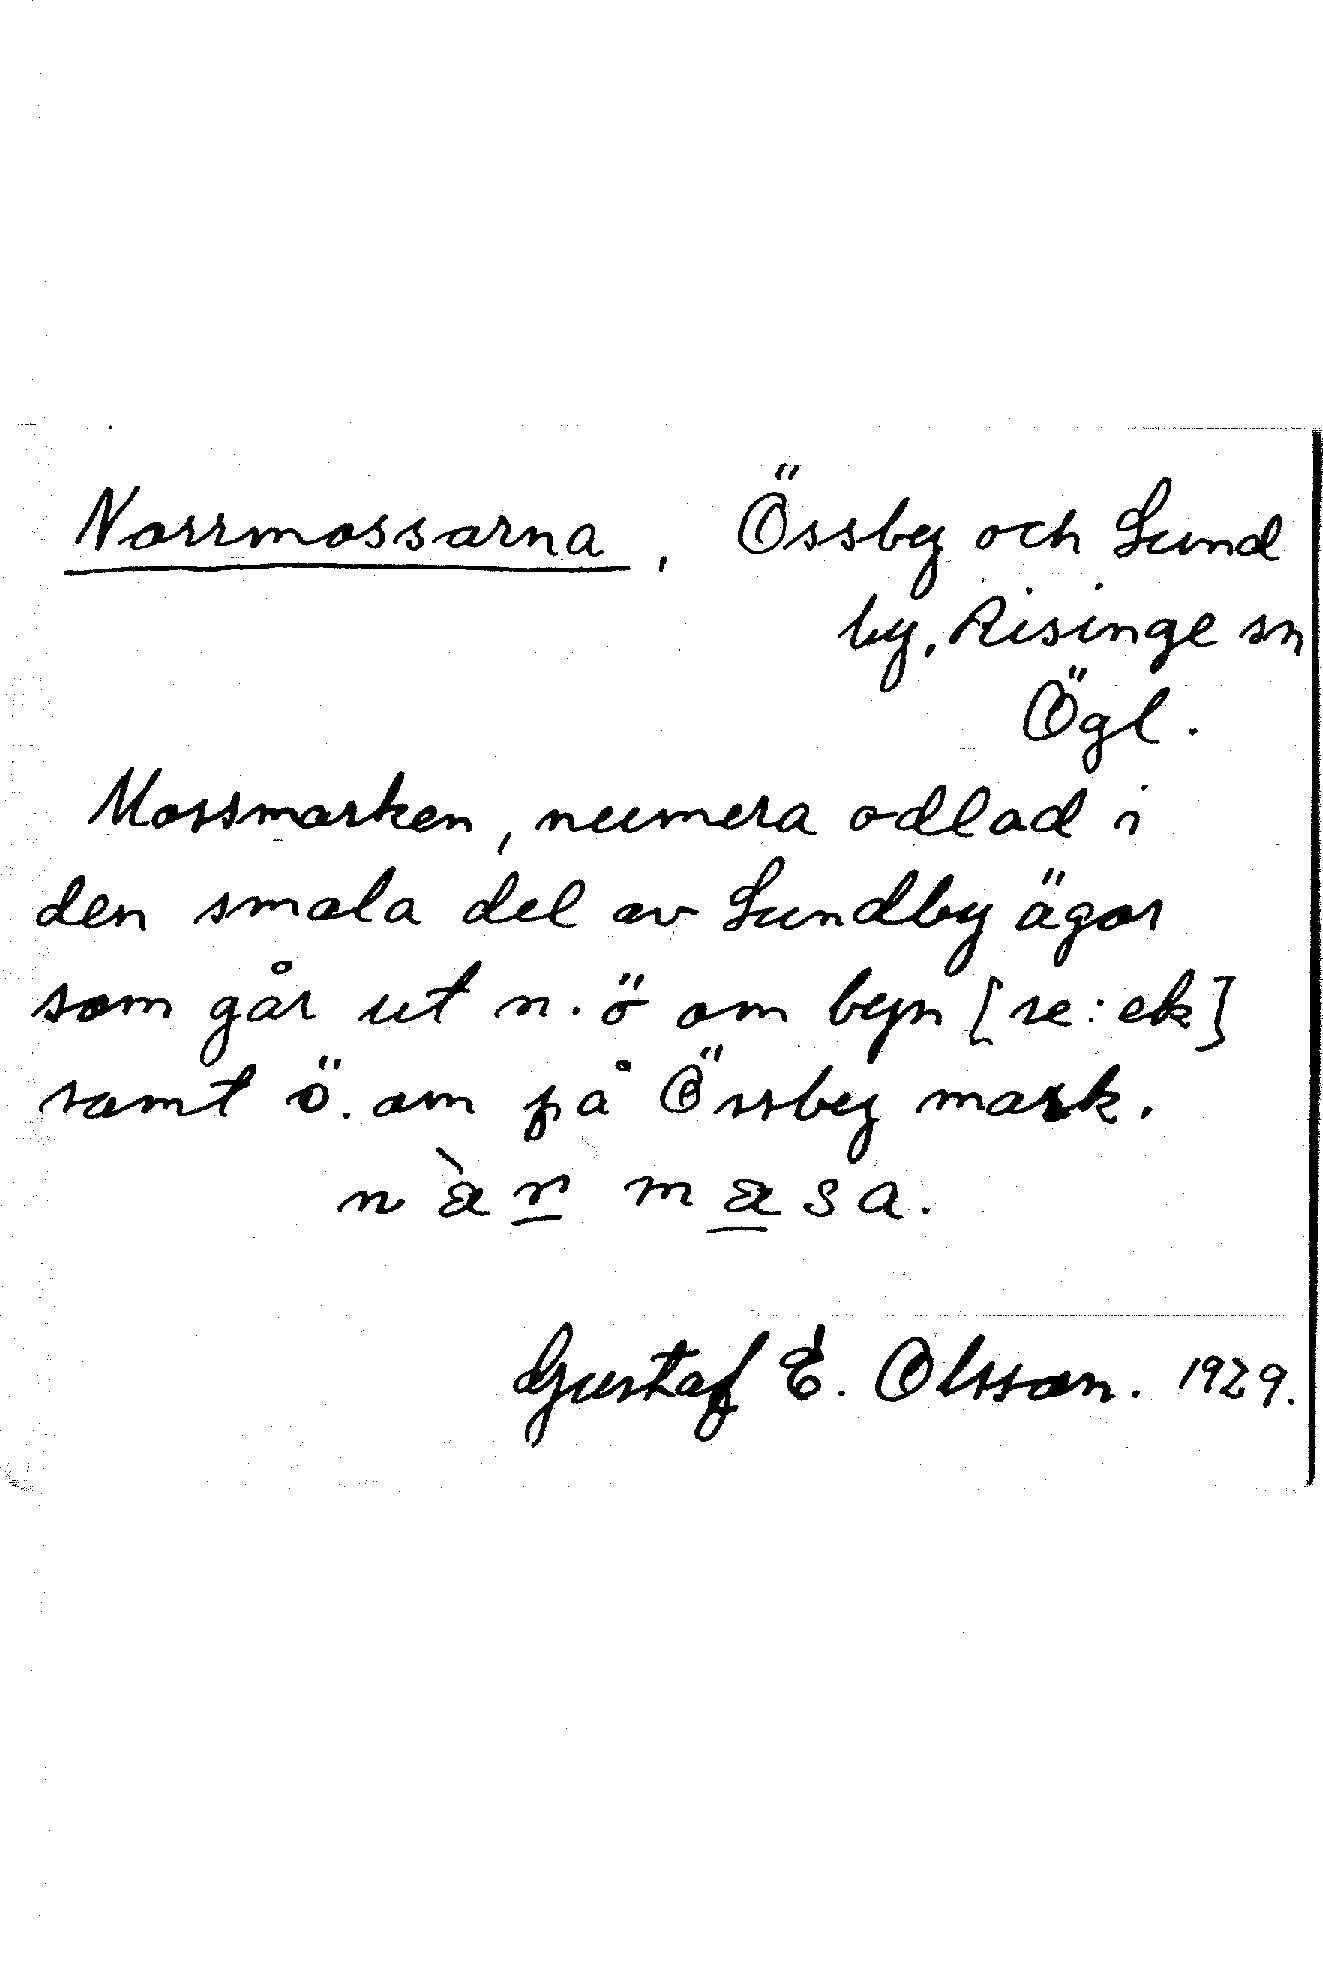 Norrmossarna, Össby och Lund
by, Risinge sn
Ögl.
Mossmarken, numera odlad i
den smala del av Lundby ägor
som går ut n.ö om byn [se: ek]
samt ö. om på Össby mark.
Gustaf E. Olsson. 1929.